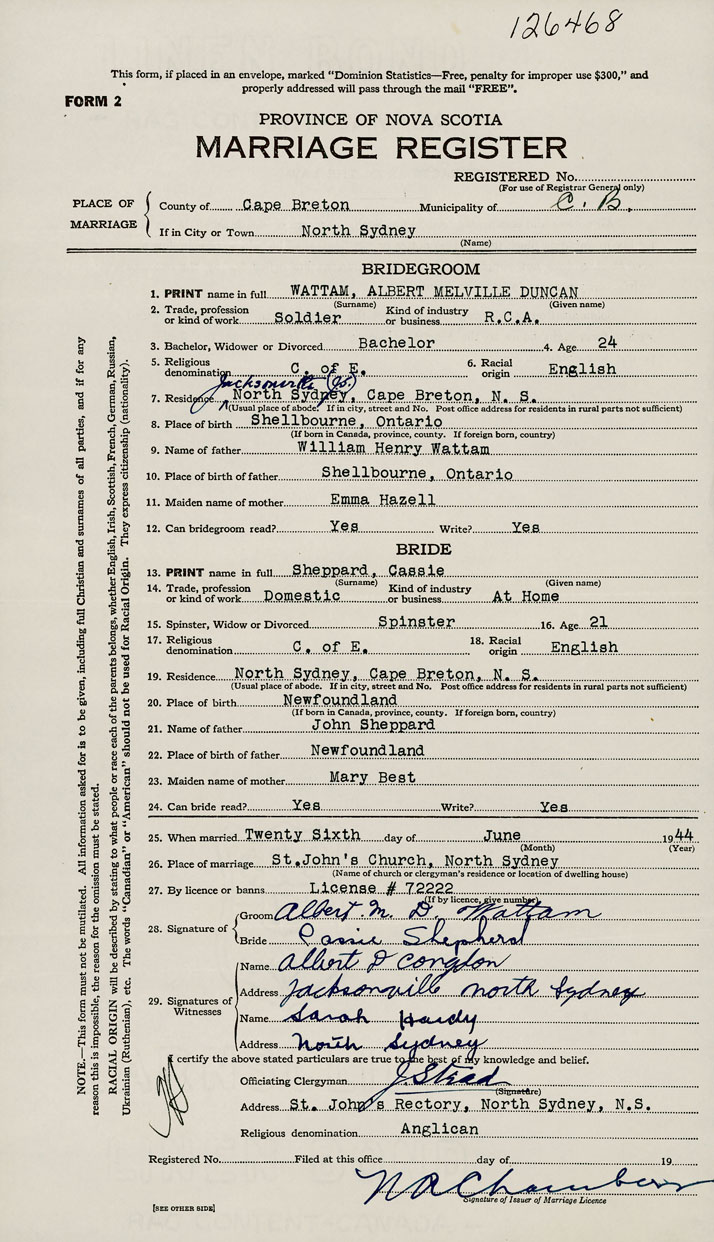 126468
This form, if placed in an envelope, marked "Dominion Statistics—Free, penalty for improper use $300," and
properly addressed will pass through the mail "FREE".
FORM 2
PROVINCE OF NOVA SCOTIA
MARRIAGE REGISTER
REGISTERED No.
(For use of Registrar General only)
PLACE OF MARRIAGE
County of Cape Breton Municipality of C. B.
If in City or Town North Sydney
(Name)
BRIDEGROOM
1. PRINT name in full WATTAM, ALBERT MELVILLE DUNCAN
(Surname) (Given name)
2. Trade, profession or kind of work Soldier Kind of industry or business R.C.A.
3. Bachelor, Widower or Divorced Bachelor 4. Age 24
5. Religious denomination C. of E. 6. Racial origin English
Jacksonville
7. Residence North Sydney, Cape Breton, N. S.
(Usual place of abode. If in city, street and No. Post office address for residents in rural parts not sufficient)
8. Place of birth Shellbourne, Ontario
(If born in Canada, province, county. If foreign born, country)
9. Name of father William Henry Wattam
10. Place of birth of father Shellbourne, Ontario
11. Maiden name of mother Emma Hazell
12. Can bridegroom read? Yes Write? Yes
BRIDE
13. PRINT name in full Sheppard, Cassie
(Surname) (Given name)
14. Trade, profession or kind of work Domestic Kind of industry or business At Home
15. Spinster, Widow or Divorced Spinster 16. Age 21
17. Religious denomination C. of E. 18. Racial origin English
19. Residence North Sydney, Cape Breton, N. S.
(Usual place of abode. If in city, street and No. Post office address for residents in rural parts not sufficient)
20. Place of birth Newfoundland
(If born in Canada, province, county. If foreign born, country)
21. Name of father John Sheppard
22. Place of birth of father Newfoundland
23. Maiden name of mother Mary Best
24. Can bride read? Yes Write? Yes
25. When married Twenty Sixth day of June 1944
(Month) (Year)
26. Place of marriage St.John's Church, North Sydney
(Name of church or clergyman's residence or location of dwelling house)
27. By licence or banns License # 72222
(If by licence, give number)
28. Signature of
Groom Albert M. D. Wattam
Bride Cassie Shepherd
29. Signatures of Witnesses
Name Albert D Congdon
Address Jacksonville north Sydney
Name Sarah Hardy
Address North Sydney
I certify the above stated particulars are true to the best of my knowledge and belief.
Officiating Clergyman J. Strad
(Signature)
Address St. John's Rectory, North Sydney, N.S.
Religious denomination Anglican
Registered No. Filed at this office day of 19
N R Chambers
Signature of Issuer of Marriage Licence
[SEE OTHER SIDE]
NOTE.—This form must not be mutilated. All information asked for is to be given, including full Christian and surnames of all parties, and if for any
reason this is impossible, the reason for the omission must be stated.
RACIAL ORIGIN will be described by stating to what people or race each of the parents belongs, whether English, Irish, Scottish, French, German, Russian,
Ukrainian (Ruthenian), etc. The words "Canadian" or "American" should not be used for Racial Origin. They express citizenship (nationality).